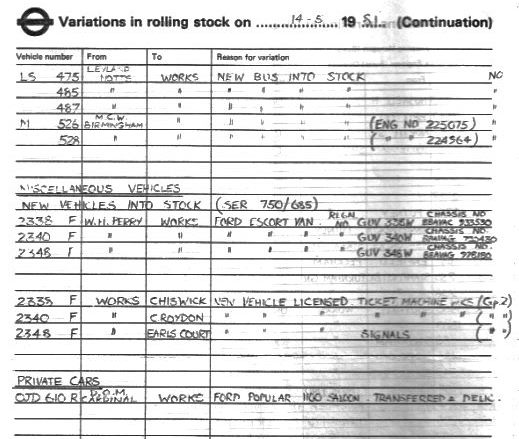 Variations in rolling stock on 14-5. 19 81. (Continuation)
Vehicle number From To Reason for variation
LS 475 LEYLAND NOTTS WORKS NEW BUS INTO STOCK NO
485 " " " " " " "
487 " " " " " " "
M 526 M.C.W. BIRMINGHAM " " " " " (ENG NO 225675) "
528 " " " " " " ( " " 224964) "
MISCELLANEOUS VEHICLES
NEW VEHICLES INTO STOCK (SER 750/685)
2338 F W.H. PERRY WORKS FORD ESCORT VAN. REGN. NO. GUV 338W CHASSIS NO.
2340 F " " " " " " GUV 340W CHASSIS NO.
2348 F " " " " " " GUV 348W CHASSIS NO.
2338 F WORKS CHISWICK NEW VEHICLE LICENSED. TICKET MACHINE WKS (Gp.2)
2340 F " CROYDON " " " " " " ( " " )
2348 F " EARLS COURT " " " SIGNALS ( " " )
PRIVATE CARS
610 R CARDINAL WORKS FORD POPULAR 1100 SALOON. TRANSFERRED &